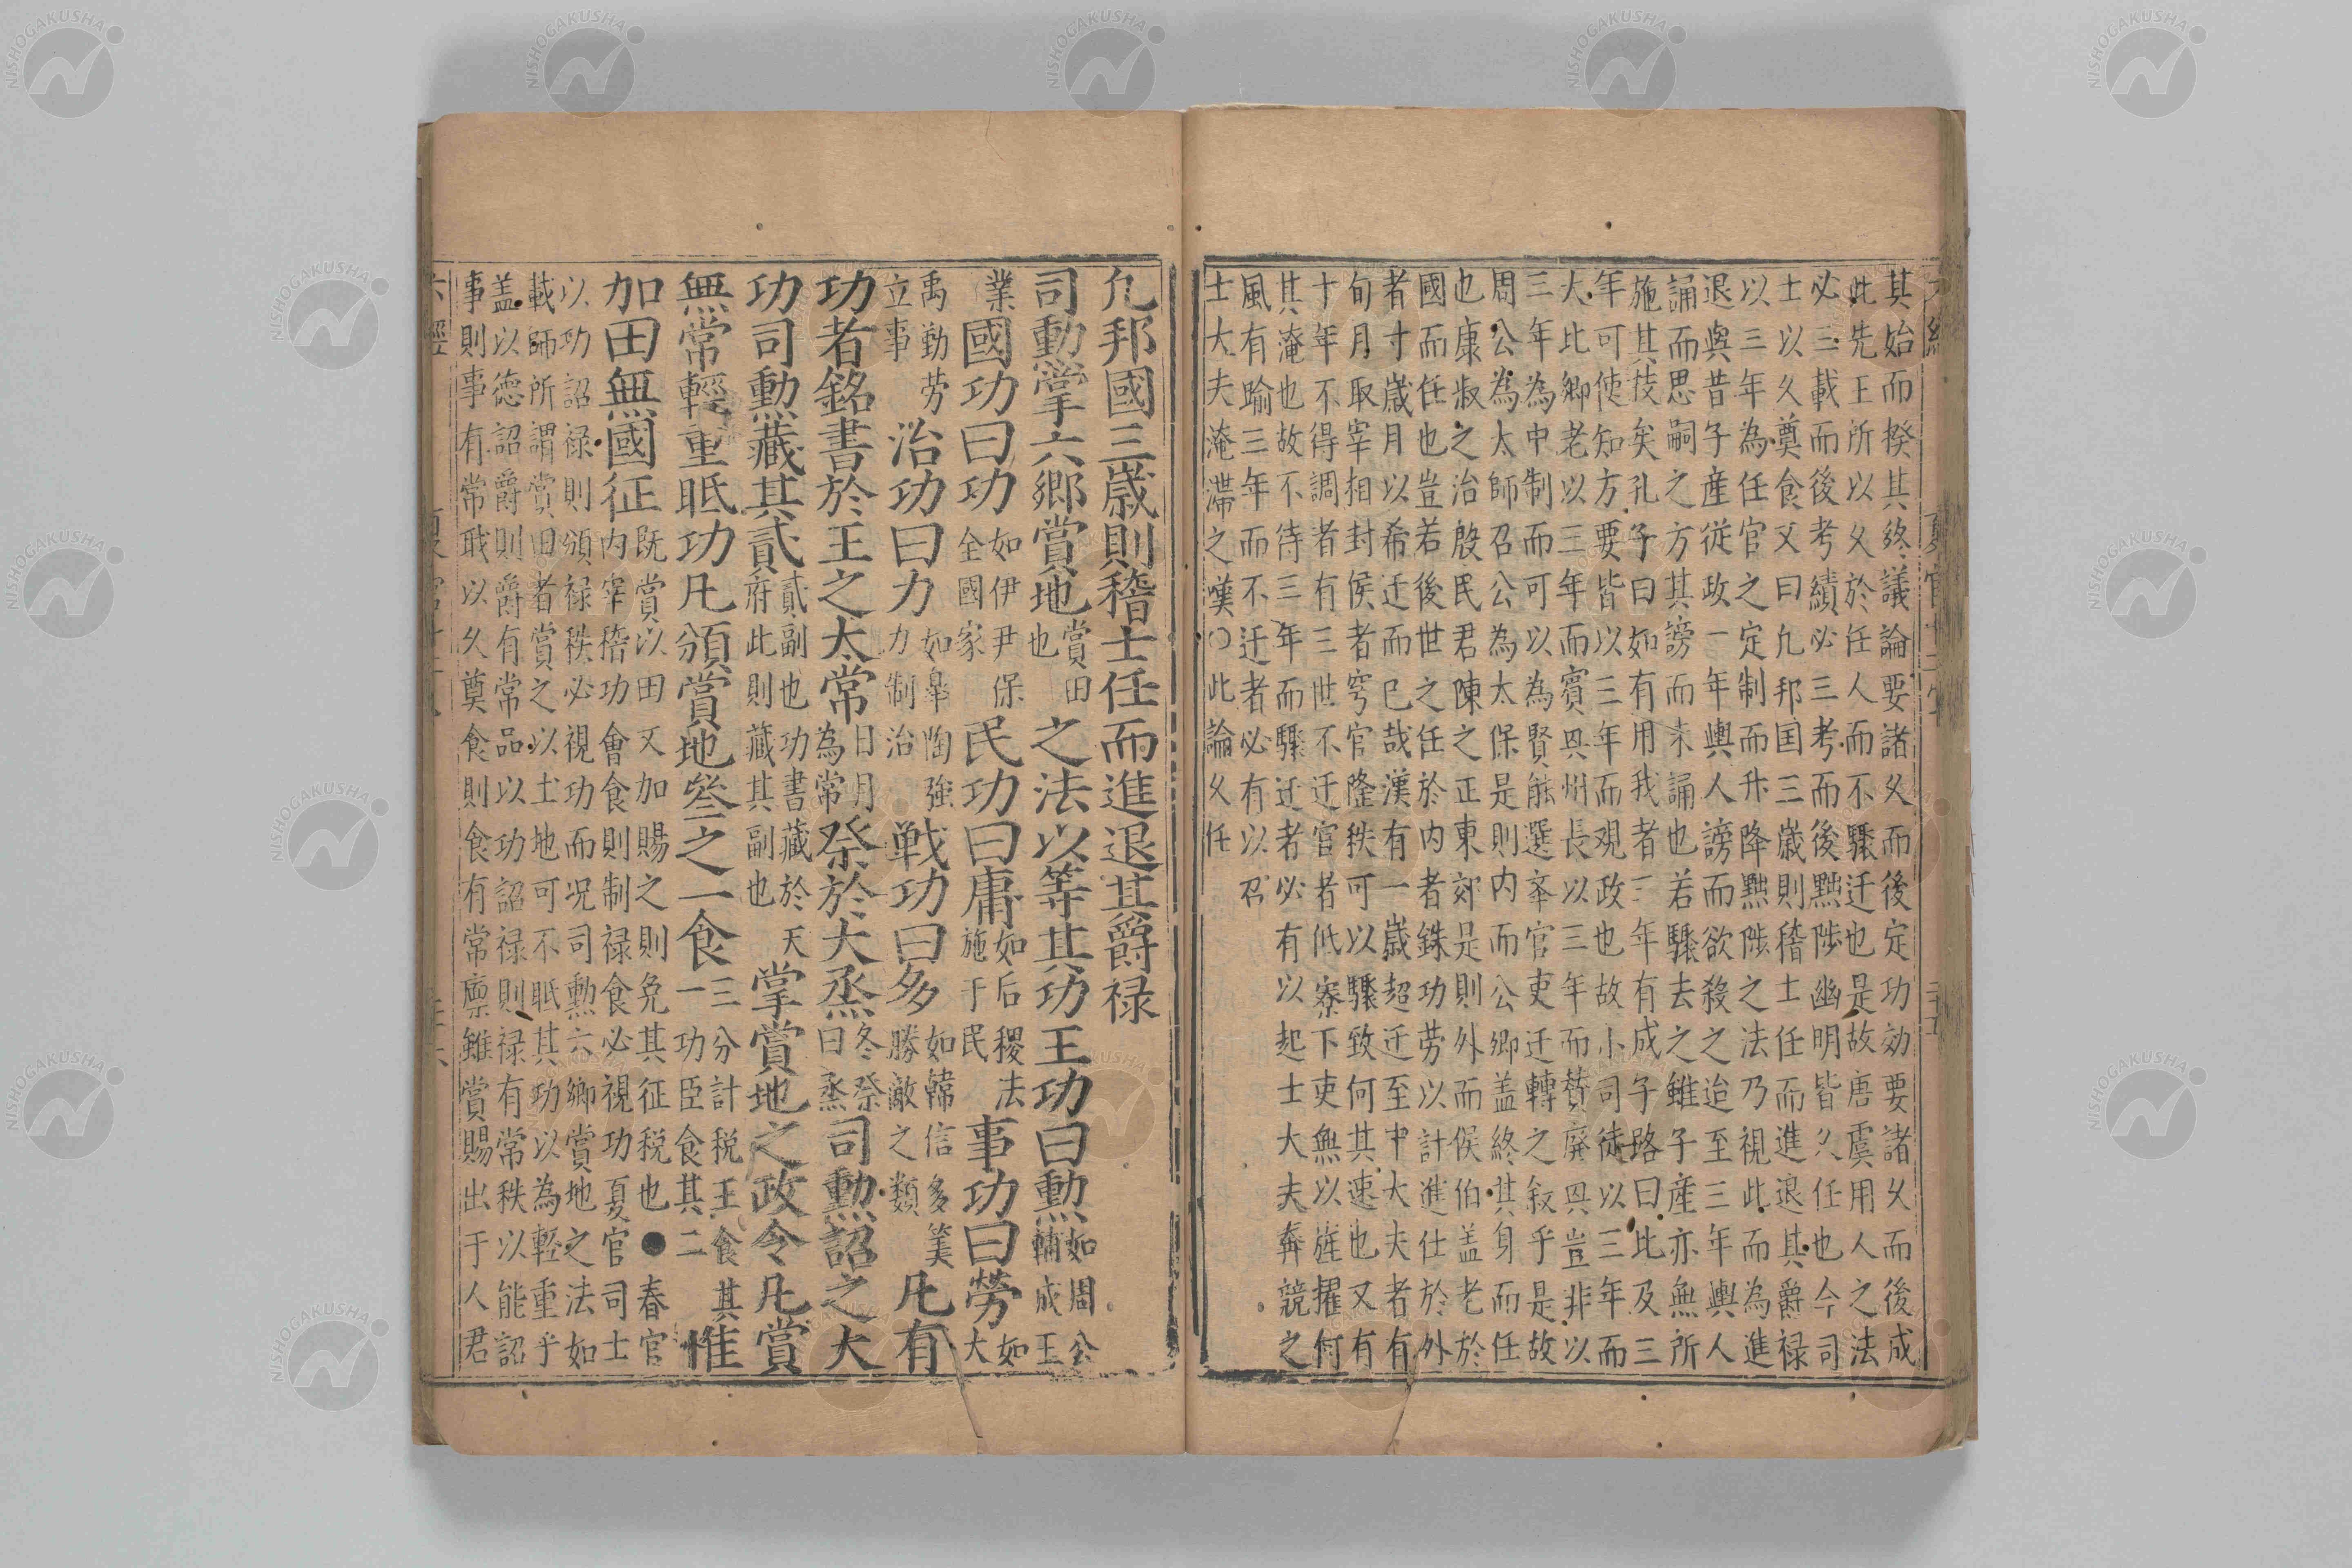 其始而揆其終議論要諸久而後定功効要諸久而後成
此先王所以久於任人而不驟迁也是故唐虞用人之法
必三載而後考績必三考而後黜陟幽明皆久任也今司
士以久奠食又曰凢邦国三歲則稽士任而進退其爵禄
以三年為任官之定制而升降黜陟之法乃視此而為進
退與昔子産従政一年輿人謗而欲殺之迨至三年輿人
誦而思嗣之方其謗而未誦也若驟去之雖子産亦無所
施其技矣孔子曰如有用我者三年有成子路曰此及三
年可使知方要皆以三年而观政也故小司徒以三年而
大比鄉老以三年而賓興州長以三年而賛廃興豈非以
三年為中制而可以為賢能選率官吏迁轉之叙乎是故
周公為太師召公為太保是則内而公卿盖終其身而任
也康叔之治殷民君陳之正東郊是則外而侯伯盖老於
國而任也豈若後世之任於内者銖功劳以計進仕於外
者寸歲月以希迁而已哉漢有一歲超迁至中大夫者有
旬月取宰相封侯者穹官隆秩可以驟致何其速也又有
十年不得調者有三世不迁官者低寮下吏無以旌擢何
其淹也故不待三年而驟迁者必有以起士大夫奔競之
風有踰三年而不迁者必有以召
士大夫淹滞之嘆〇此論久任
凢邦國三歲則稽士任而進退其爵禄
司勳掌六鄉賞地賞田也之法以等其功王功曰勳如周公輔成王
業國功曰功如伊尹保全國家民功曰庸如后稷法施于民事功曰勞如大
禹勤劳立事治功曰力如皋陶強力制治戦功曰多如韓信多筭勝敵之類凡有
功者銘書於王之太常日月為常祭於大烝冬祭曰烝司勳詔之大
功司勲藏其貳貳副也功書藏於天府此則藏其副也掌賞地之政令凡賞
無常輕重眡功凡頒賞地叄之一食三分計税王食其一功臣食其二惟
加田無國征既賞以田又加賜之則免其征税也●春官内宰稽功會食則制禄食必視功夏官司士
以功詔禄則頒禄秩必視功而况司勲六鄉賞地之法如
載師所謂賞田者賞之以土地可不眡其功以為輕重乎
盖以德詔爵則爵有常品以功詔禄則禄有常秩以能詔
事則事有常職以久奠食則食有常廪雖賞賜出于人君